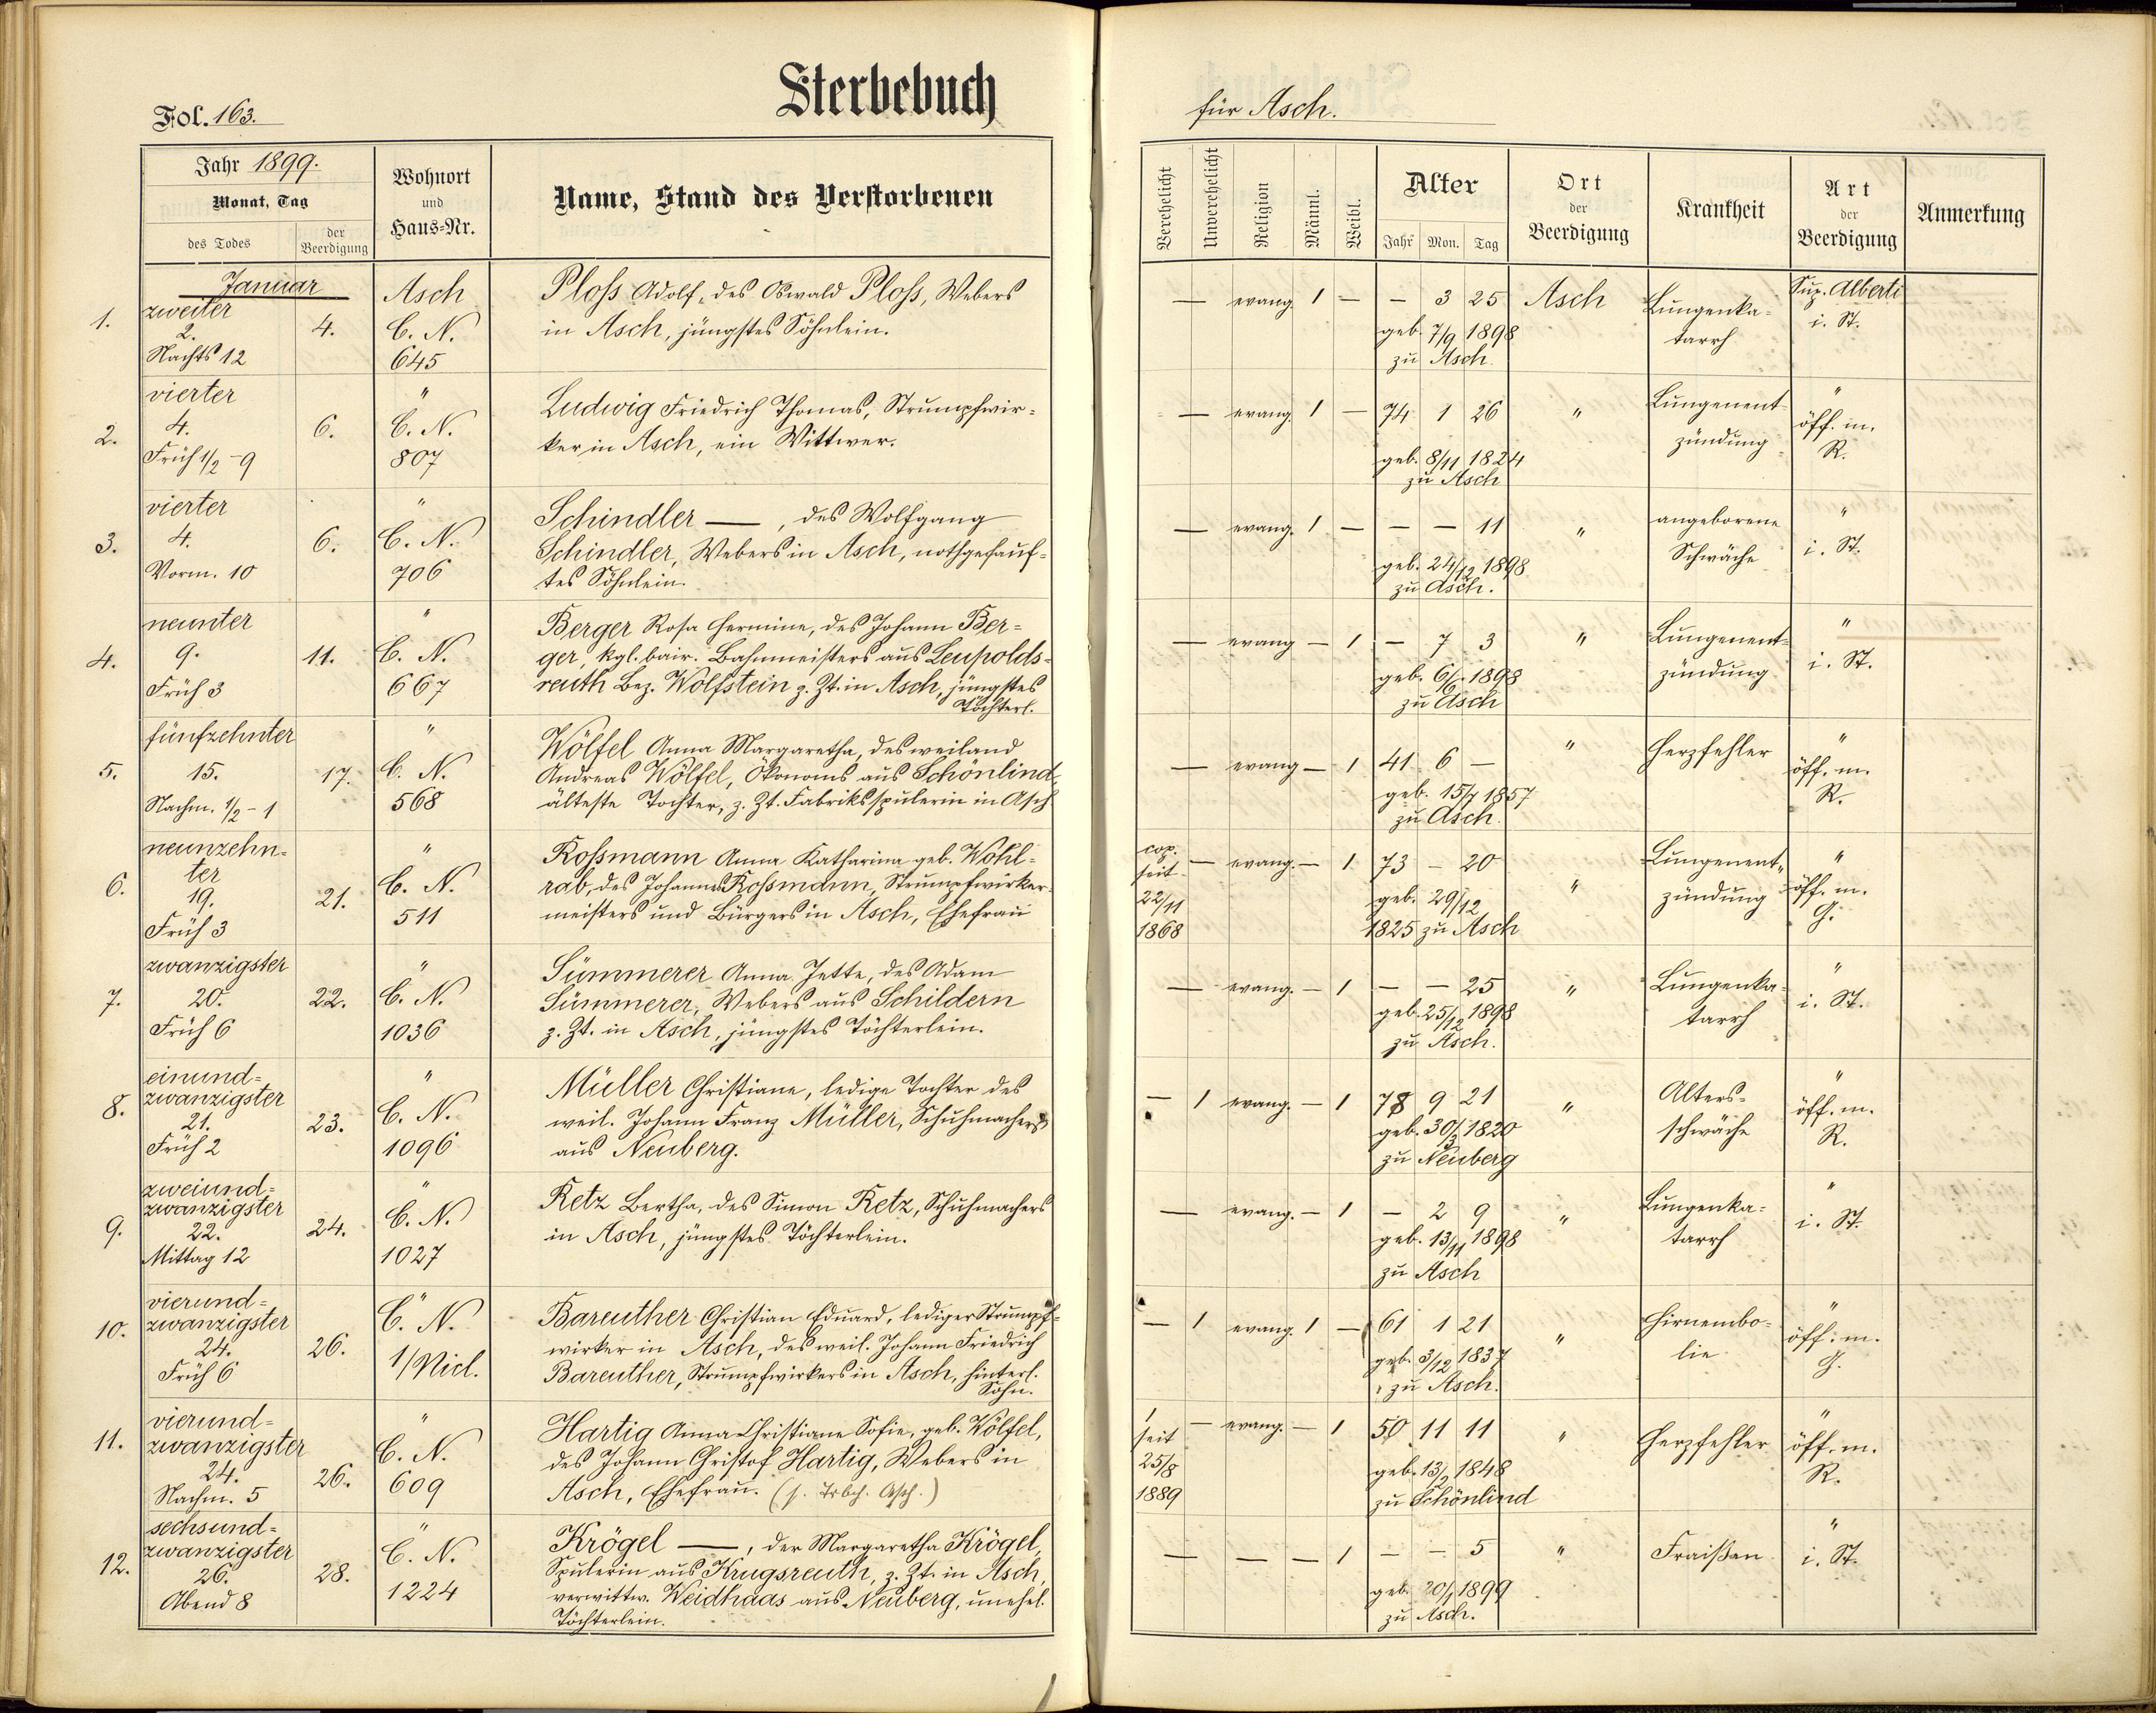 Fol. 163.
Sterbebuch
für Asch.
Jahr 1899.
Monat, Tag
des Todes
der Beerdigung
Wohnort
und
Haus-Nr.
Name, Stand des Verstorbenen
Verehelicht
Unverehelicht
Religion
Männl.
Weibl.
Alter
Jahr Mon. Tag
Ort
der
Beerdigung
Krankheit
Art
der
Beerdigung
Anmerkung
Januar
1.
zweiter
2.
Nachts 12
4.
Asch
C. N.
645
Ploß Adolf, des Oswald Ploß, Webers
in Asch, jüngstes Söhnlein.
— evang. 1 — — 3 25
geb. 7/9 1898
zu Asch.
Asch
Lungenka=
tarrh
Sup. Alberti
i. St.
2.
vierter
4.
Früh 1/2-9
6.
"
C. N.
807
Ludwig Friedrich Thomas, Strumpfwir=
ker in Asch, ein Wittwer.
— evang. 1 — 74 1 26
geb. 8/11 1824
zu Asch
"
Lungenent
zündung
"
öff. m.
R.
3.
vierter
4.
Vorm. 10
6.
"
C. N.
706
Schindler —, des Wolfgang
Schindler, Webers in Asch, nothgetauf=
tes Söhnlein.
— evang. 1 — — — 11
geb. 24/12 1898
zu Asch.
"
angeborene
Schwäche
"
i. St.
4.
neunter
9.
Früh 3
11.
"
C. N.
667
Berger Rosa Hermine, des Johann Ber=
ger, kgl. bair. Bahnmeisters aus Leupolds=
reuth Bez. Wolfstein z. Zt. in Asch, jüngstes
Töchterl.
— evang — 1 — 7 3
geb. 6/6 1898
zu Asch
"
Lungenent=
zündung
"
i. St.
5.
fünfzehnter
15.
Nachm. 1/2-1
17.
"
C. N.
568
Wölfel Anna Margaretha, des weiland
Andreas Wölfel, Ökonoms aus Schönlind,
älteste Tochter, z. Zt. Fabriksspulerin in Asch
— evang — 1 41 6 —
geb. 15/7 1857
zu Asch.
"
Herzfehler
"
öff. m.
R.
6.
neunzehn=
ter
19.
Früh 3
21.
"
C. N.
511
Roßmann Anna Katharina geb. Wohl=
rab, des Johann Roßmann, Strumpfwirker=
meisters und Bürgers in Asch, Ehefrau
cop.
seit
22/11
1868
— evang. — 1 73 — 20
geb. 29/12
1825 zu Asch
"
Lungenent=
zündung
"
öff. m.
G.
7.
zwanzigster
20.
Früh 6
22.
"
C. N.
1036
Sümmerer Anna Jette, des Adam
Sümmerer, Webers aus Schildern
z. Zt. in Asch, jüngstes Töchterlein.
— evang. — 1 — — 25
geb. 25/12 1898
zu Asch.
"
Lungenka=
tarrh
"
i. St.
8.
einund=
zwanzigster
21.
Früh 2
23.
"
C. N.
1096
Müller Christiane, ledige Tochter des
weil. Johann Franz Müller, Schuhmachers
aus Neuberg.
— 1 evang. — 1 78 9 21
geb. 30/3 1820
zu Neuberg
"
Alters=
schwäche
"
öff. m.
R.
9.
zweiund=
zwanzigster
22.
Mittag 12
24.
"
C. N.
1027
Retz Bertha, des Simon Retz, Schuhmachers
in Asch, jüngstes Töchterlein.
— evang. — 1 — 2 9
geb. 13/11 1898
zu Asch
"
Lungenka=
tarrh
"
i. St.
10.
vierund=
zwanzigster
24.
Früh 6
26.
"
C. N.
1/Nicl.
Bareuther Christian Eduard, lediger Strumpf=
wirker in Asch, des weil. Johann Friedrich
Bareuther, Strumpfwirkers in Asch, hinterl.
Sohn.
— 1 evang. 1 — 61 1 21
geb. 3/12 1837
zu Asch.
"
Hirnembo=
lie
"
öff. m.
G.
11.
vierund=
zwanzigster
24.
Nachm. 5
26.
"
C. N.
609
Hartig Anna Christiane Sofie, geb. Wölfel,
des Johann Christof Hartig, Webers in
Asch, Ehefrau. (s. Trbch. Asch.)
1
seit
25/8
1889
— evang. — 1 50 11 11
geb. 13/2 1848
zu Schönlind
"
Herzfehler
"
öff. m.
R.
12.
sechsund=
zwanzigster
26.
Abend 8
28.
"
C. N.
1224
Krögel —, der Margaretha Krögel,
Spulerin aus Krugsreuth, z. Zt. in Asch,
verwittw. Weidhaas aus Neuberg, unehel.
Töchterlein.
— — — 1 — — 5
geb. 20/1 1899
zu Asch.
"
Fraißen
"
i. St.